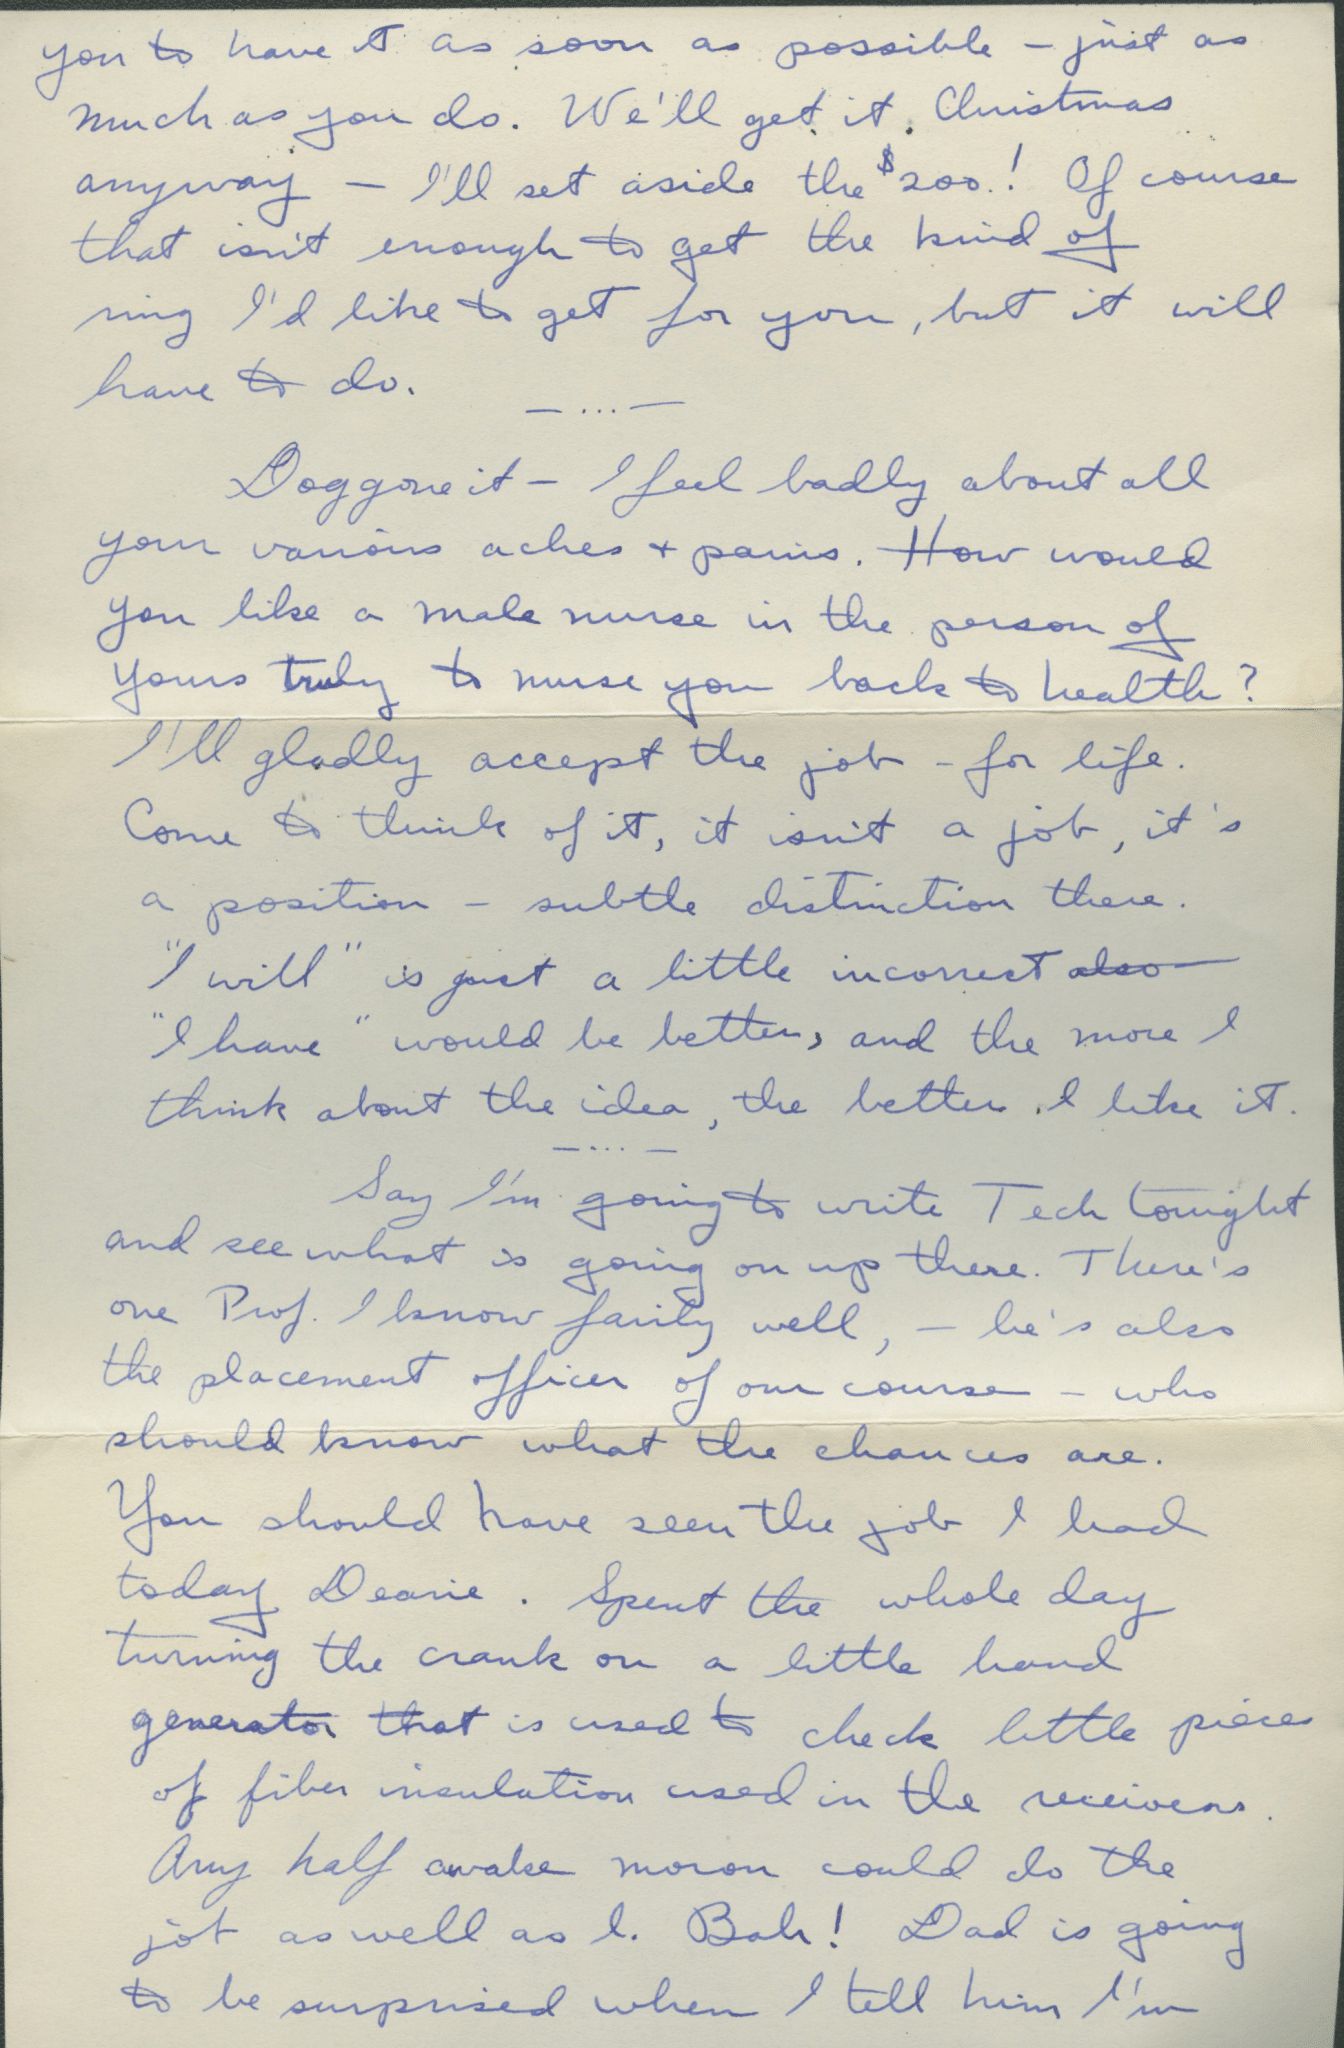 you to have it as soon as possible – just as
much as you do. We'll get it Christmas
anyway – I'll set aside the $200.! Of course
that isn't enough to get the kind of
ring I'd like to get for you, but it will
have to do.
— ... —
Doggone it – I feel badly about all
your various aches + pains. How would
you like a male nurse in the person of
yours truly to nurse you back to health?
I'll gladly accept the job – for life.
Come to think of it, it isn't a job, it's
a position – subtle distinction there.
"I will" is just a little incorrect also –
"I have" would be better, and the more I
think about the idea, the better I like it.
— ... —
Say I'm going to write Tech tonight
and see what is going on up there. There's
one Prof. I know fairly well, – he's also
the placement officer of our course – who
should know what the chances are.
You should have seen the job I had
today Dearie. Spent the whole day
turning the crank on a little hand
generator that is used to check little pieces
of fiber insulation used in the receivers.
Any half awake moron could do the
job as well as I. Bah! Dad is going
to be surprised when I tell him I'm